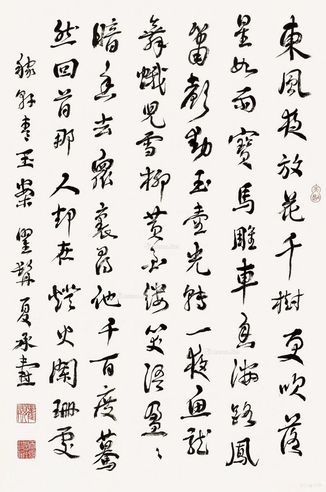 東風夜放花千樹更吹落
星如雨寶馬雕車香滿路鳳
簫聲動玉壺光轉一夜魚龍
舞蛾兒雪柳黃金縷笑語盈盈
暗香去眾裏尋他千百度驀
然回首那人却在燈火闌珊處
稼軒青玉案 瞿髯夏承燾